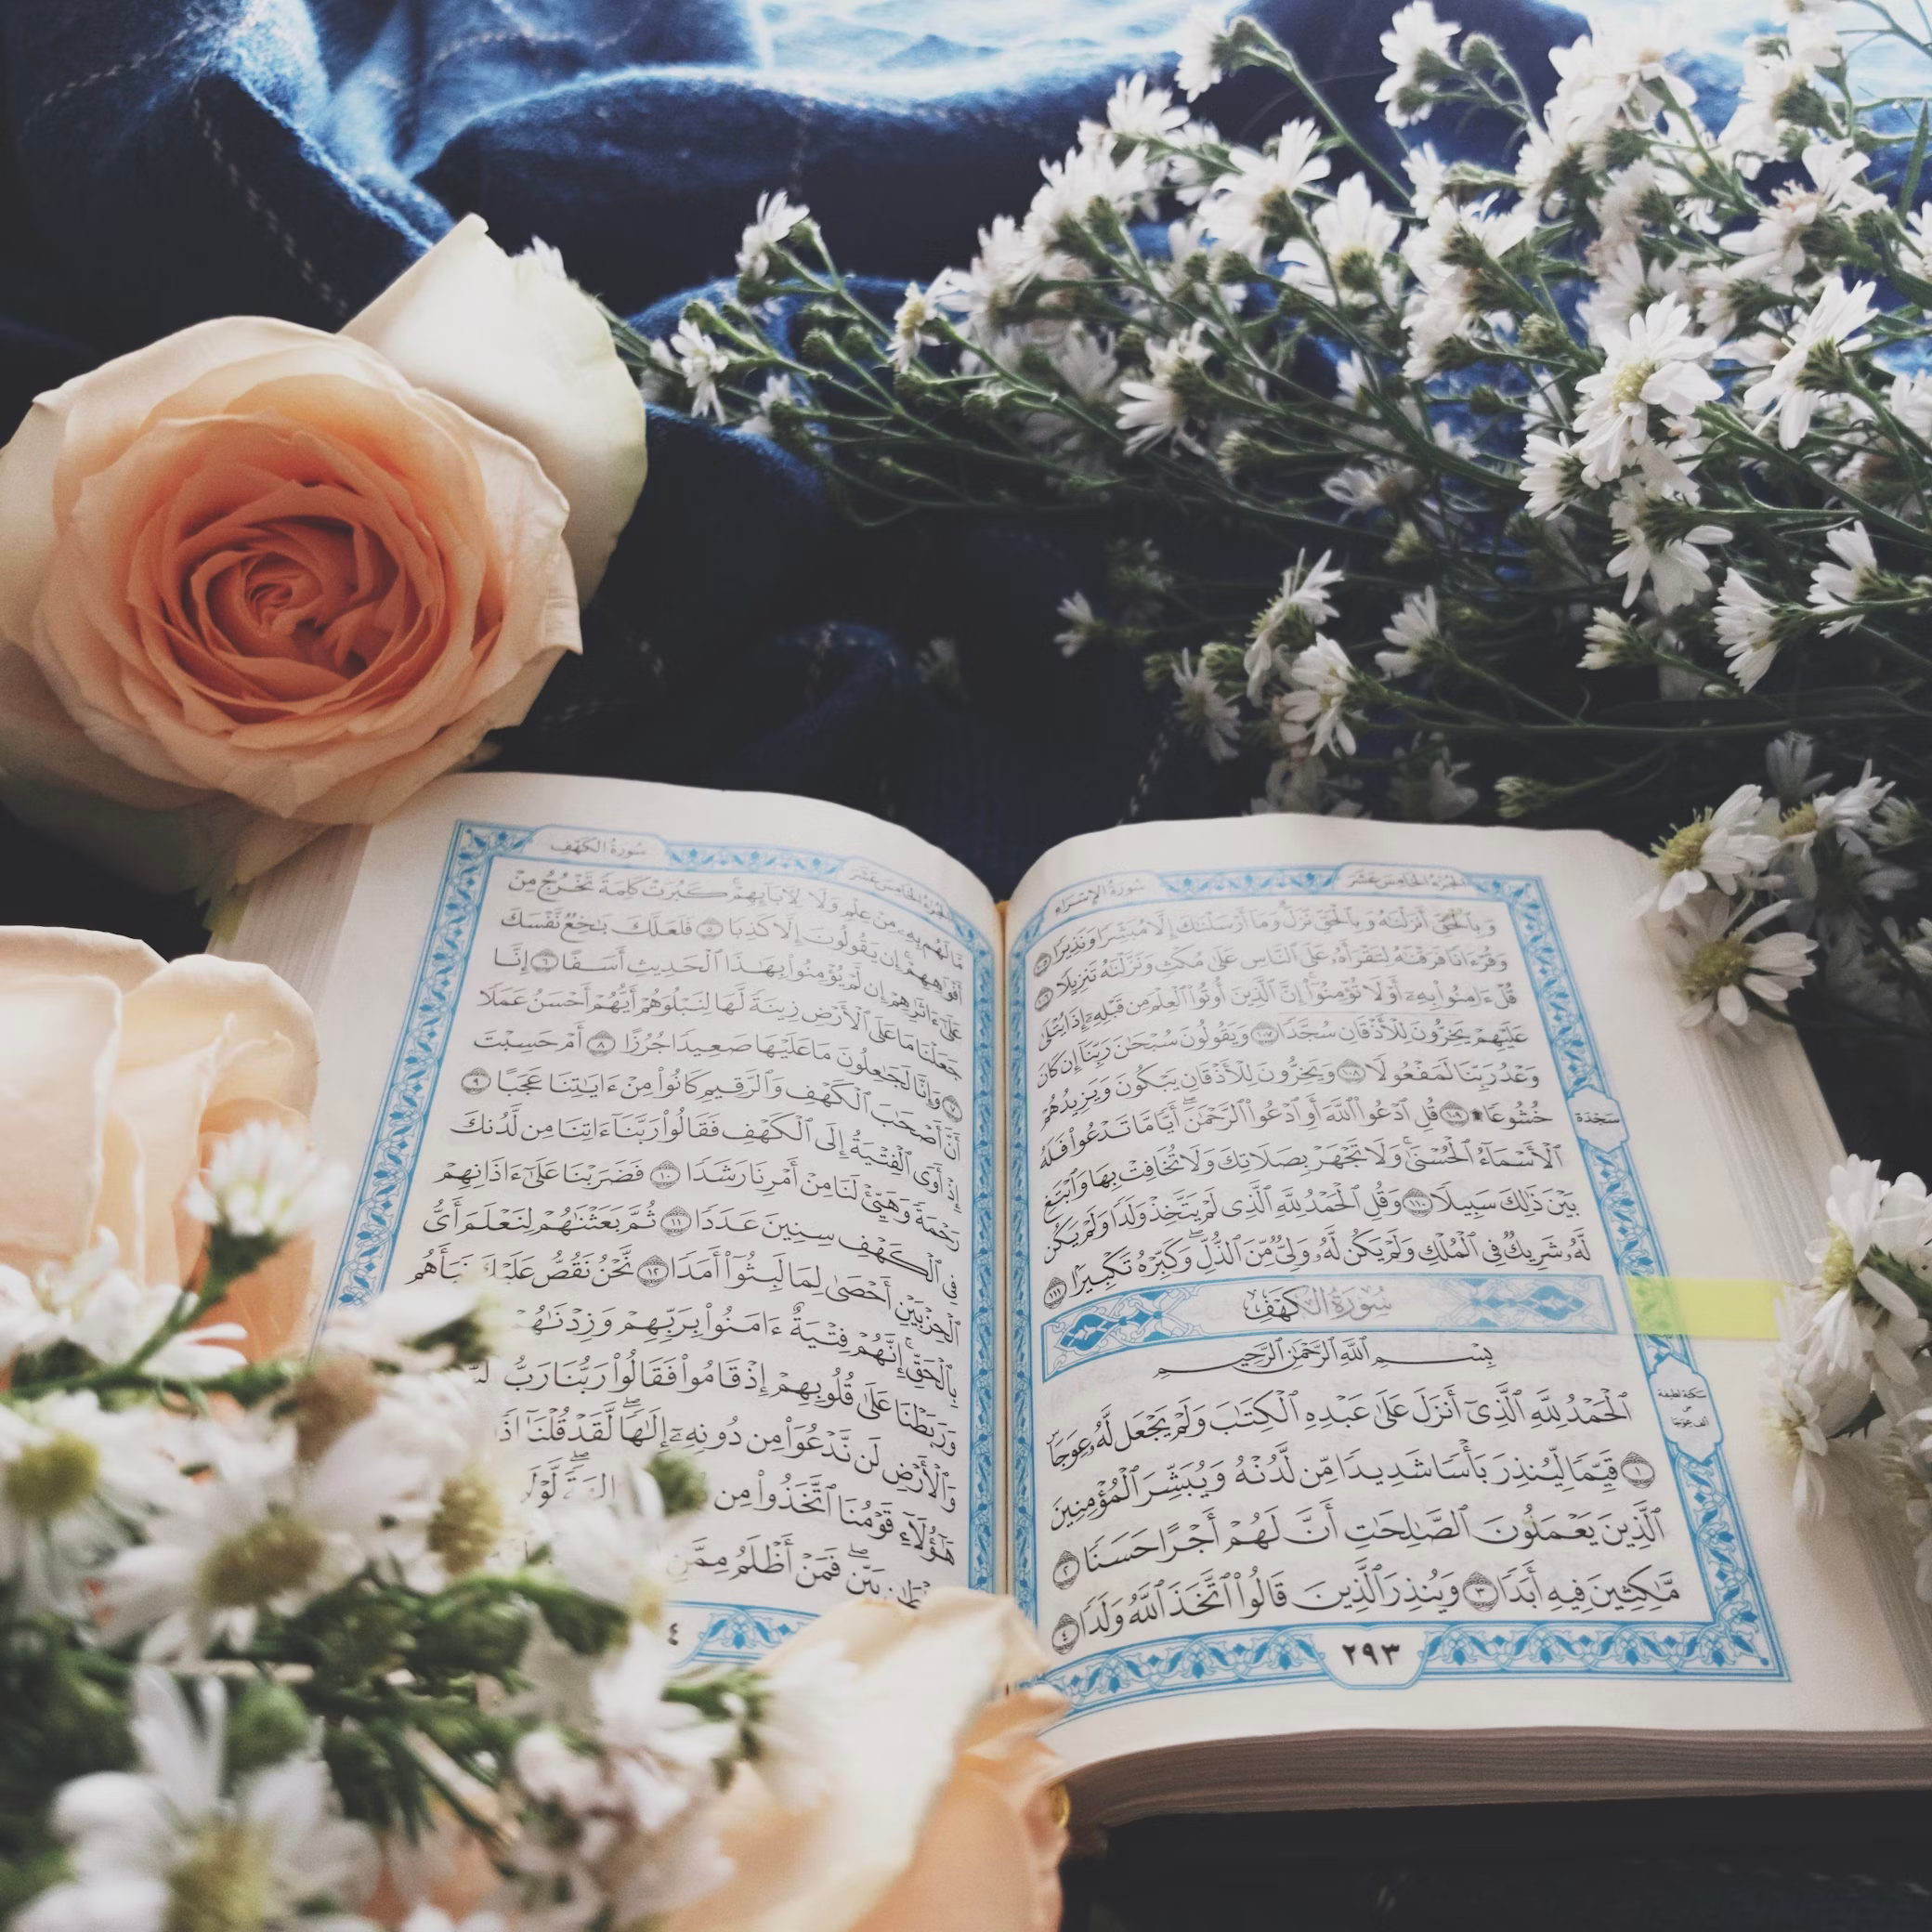 سُورَةُ الإِسْرَاء
الجُزْءُ الخَامِسَ عَشَر
وَبِٱلْحَقِّ أَنزَلْنَٰهُ وَبِٱلْحَقِّ نَزَلَ ۗ وَمَآ أَرْسَلْنَٰكَ إِلَّا مُبَشِّرًا وَنَذِيرًا ١٠٥
وَقُرْءَانًا فَرَقْنَٰهُ لِتَقْرَأَهُۥ عَلَى ٱلنَّاسِ عَلَىٰ مُكْثٍ وَنَزَّلْنَٰهُ تَنزِيلًا ١٠٦
قُلْ ءَامِنُوا۟ بِهِۦٓ أَوْ لَا تُؤْمِنُوٓا۟ ۚ إِنَّ ٱلَّذِينَ أُوتُوا۟ ٱلْعِلْمَ مِن قَبْلِهِۦٓ إِذَا يُتْلَىٰ
عَلَيْهِمْ يَخِرُّونَ لِلْأَذْقَانِ سُجَّدًا ١٠٧ وَيَقُولُونَ سُبْحَٰنَ رَبِّنَآ إِن كَانَ
وَعْدُ رَبِّنَا لَمَفْعُولًا ١٠٨ وَيَخِرُّونَ لِلْأَذْقَانِ يَبْكُونَ وَيَزِيدُهُمْ
خُشُوعًا ۩ ١٠٩ قُلِ ٱدْعُوا۟ ٱللَّهَ أَوِ ٱدْعُوا۟ ٱلرَّحْمَٰنَ ۖ أَيًّا مَّا تَدْعُوا۟ فَلَهُ
سَجْدَة
ٱلْأَسْمَآءُ ٱلْحُسْنَىٰ ۚ وَلَا تَجْهَرْ بِصَلَاتِكَ وَلَا تُخَافِتْ بِهَا وَٱبْتَغِ
بَيْنَ ذَٰلِكَ سَبِيلًا ١١٠ وَقُلِ ٱلْحَمْدُ لِلَّهِ ٱلَّذِى لَمْ يَتَّخِذْ وَلَدًا وَلَمْ يَكُن
لَّهُۥ شَرِيكٌ فِى ٱلْمُلْكِ وَلَمْ يَكُن لَّهُۥ وَلِىٌّ مِّنَ ٱلذُّلِّ ۖ وَكَبِّرْهُ تَكْبِيرًۢا ١١١
سُورَةُ الكَهْفِ
بِسْمِ ٱللَّهِ ٱلرَّحْمَٰنِ ٱلرَّحِيمِ
ٱلْحَمْدُ لِلَّهِ ٱلَّذِىٓ أَنزَلَ عَلَىٰ عَبْدِهِ ٱلْكِتَٰبَ وَلَمْ يَجْعَل لَّهُۥ عِوَجَا ۜ
سكتة لطيفة
ألف عوجا
١ قَيِّمًا لِّيُنذِرَ بَأْسًا شَدِيدًا مِّن لَّدُنْهُ وَيُبَشِّرَ ٱلْمُؤْمِنِينَ
ٱلَّذِينَ يَعْمَلُونَ ٱلصَّٰلِحَٰتِ أَنَّ لَهُمْ أَجْرًا حَسَنًا ٢
مَّٰكِثِينَ فِيهِ أَبَدًا ٣ وَيُنذِرَ ٱلَّذِينَ قَالُوا۟ ٱتَّخَذَ ٱللَّهُ وَلَدًا ٤
٢٩٣
سُورَةُ الكَهْفِ
الجُزْءُ الخَامِسَ عَشَر
مَّا لَهُم بِهِۦ مِنْ عِلْمٍ وَلَا لِءَابَآئِهِمْ ۚ كَبُرَتْ كَلِمَةً تَخْرُجُ مِنْ
أَفْوَٰهِهِمْ ۚ إِن يَقُولُونَ إِلَّا كَذِبًا ٥ فَلَعَلَّكَ بَٰخِعٌ نَّفْسَكَ
عَلَىٰٓ ءَاثَٰرِهِمْ إِن لَّمْ يُؤْمِنُوا۟ بِهَٰذَا ٱلْحَدِيثِ أَسَفًا ٦ إِنَّا
جَعَلْنَا مَا عَلَى ٱلْأَرْضِ زِينَةً لَّهَا لِنَبْلُوَهُمْ أَيُّهُمْ أَحْسَنُ عَمَلًا
٧ وَإِنَّا لَجَٰعِلُونَ مَا عَلَيْهَا صَعِيدًا جُرُزًا ٨ أَمْ حَسِبْتَ
أَنَّ أَصْحَٰبَ ٱلْكَهْفِ وَٱلرَّقِيمِ كَانُوا۟ مِنْ ءَايَٰتِنَا عَجَبًا ٩
إِذْ أَوَى ٱلْفِتْيَةُ إِلَى ٱلْكَهْفِ فَقَالُوا۟ رَبَّنَآ ءَاتِنَا مِن لَّدُنكَ
رَحْمَةً وَهَيِّئْ لَنَا مِنْ أَمْرِنَا رَشَدًا ١٠ فَضَرَبْنَا عَلَىٰٓ ءَاذَانِهِمْ
فِى ٱلْكَهْفِ سِنِينَ عَدَدًا ١١ ثُمَّ بَعَثْنَٰهُمْ لِنَعْلَمَ أَىُّ
ٱلْحِزْبَيْنِ أَحْصَىٰ لِمَا لَبِثُوٓا۟ أَمَدًا ١٢ نَّحْنُ نَقُصُّ عَلَيْكَ نَبَأَهُم
بِٱلْحَقِّ ۚ إِنَّهُمْ فِتْيَةٌ ءَامَنُوا۟ بِرَبِّهِمْ وَزِدْنَٰهُمْ
وَرَبَطْنَا عَلَىٰ قُلُوبِهِمْ إِذْ قَامُوا۟ فَقَالُوا۟ رَبُّنَا رَبُّ
وَٱلْأَرْضِ لَن نَّدْعُوَا۟ مِن دُونِهِۦٓ إِلَٰهًا ۖ لَّقَدْ قُلْنَآ
هَٰٓؤُلَآءِ قَوْمُنَا ٱتَّخَذُوا۟ مِن
بَيِّنٍ ۖ فَمَنْ أَظْلَمُ مِمَّنِ